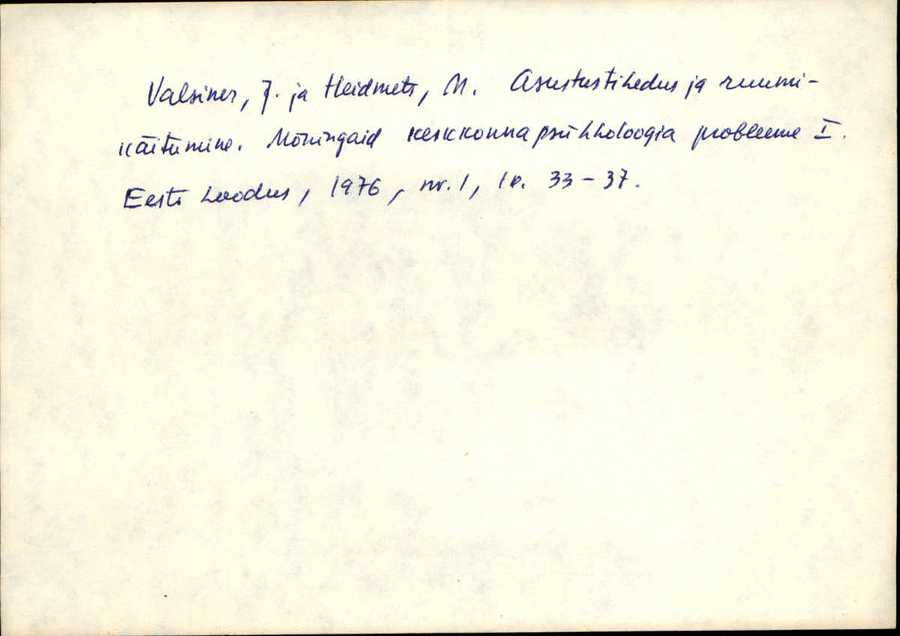 Valsiner, J. ja Heidmets, M. Asustustihedus ja ruumi-
käitumine. Mõningaid keskkonnapsühholoogia probleeme I.
Eesti Loodus, 1976, nr. 1, lk. 33-37.